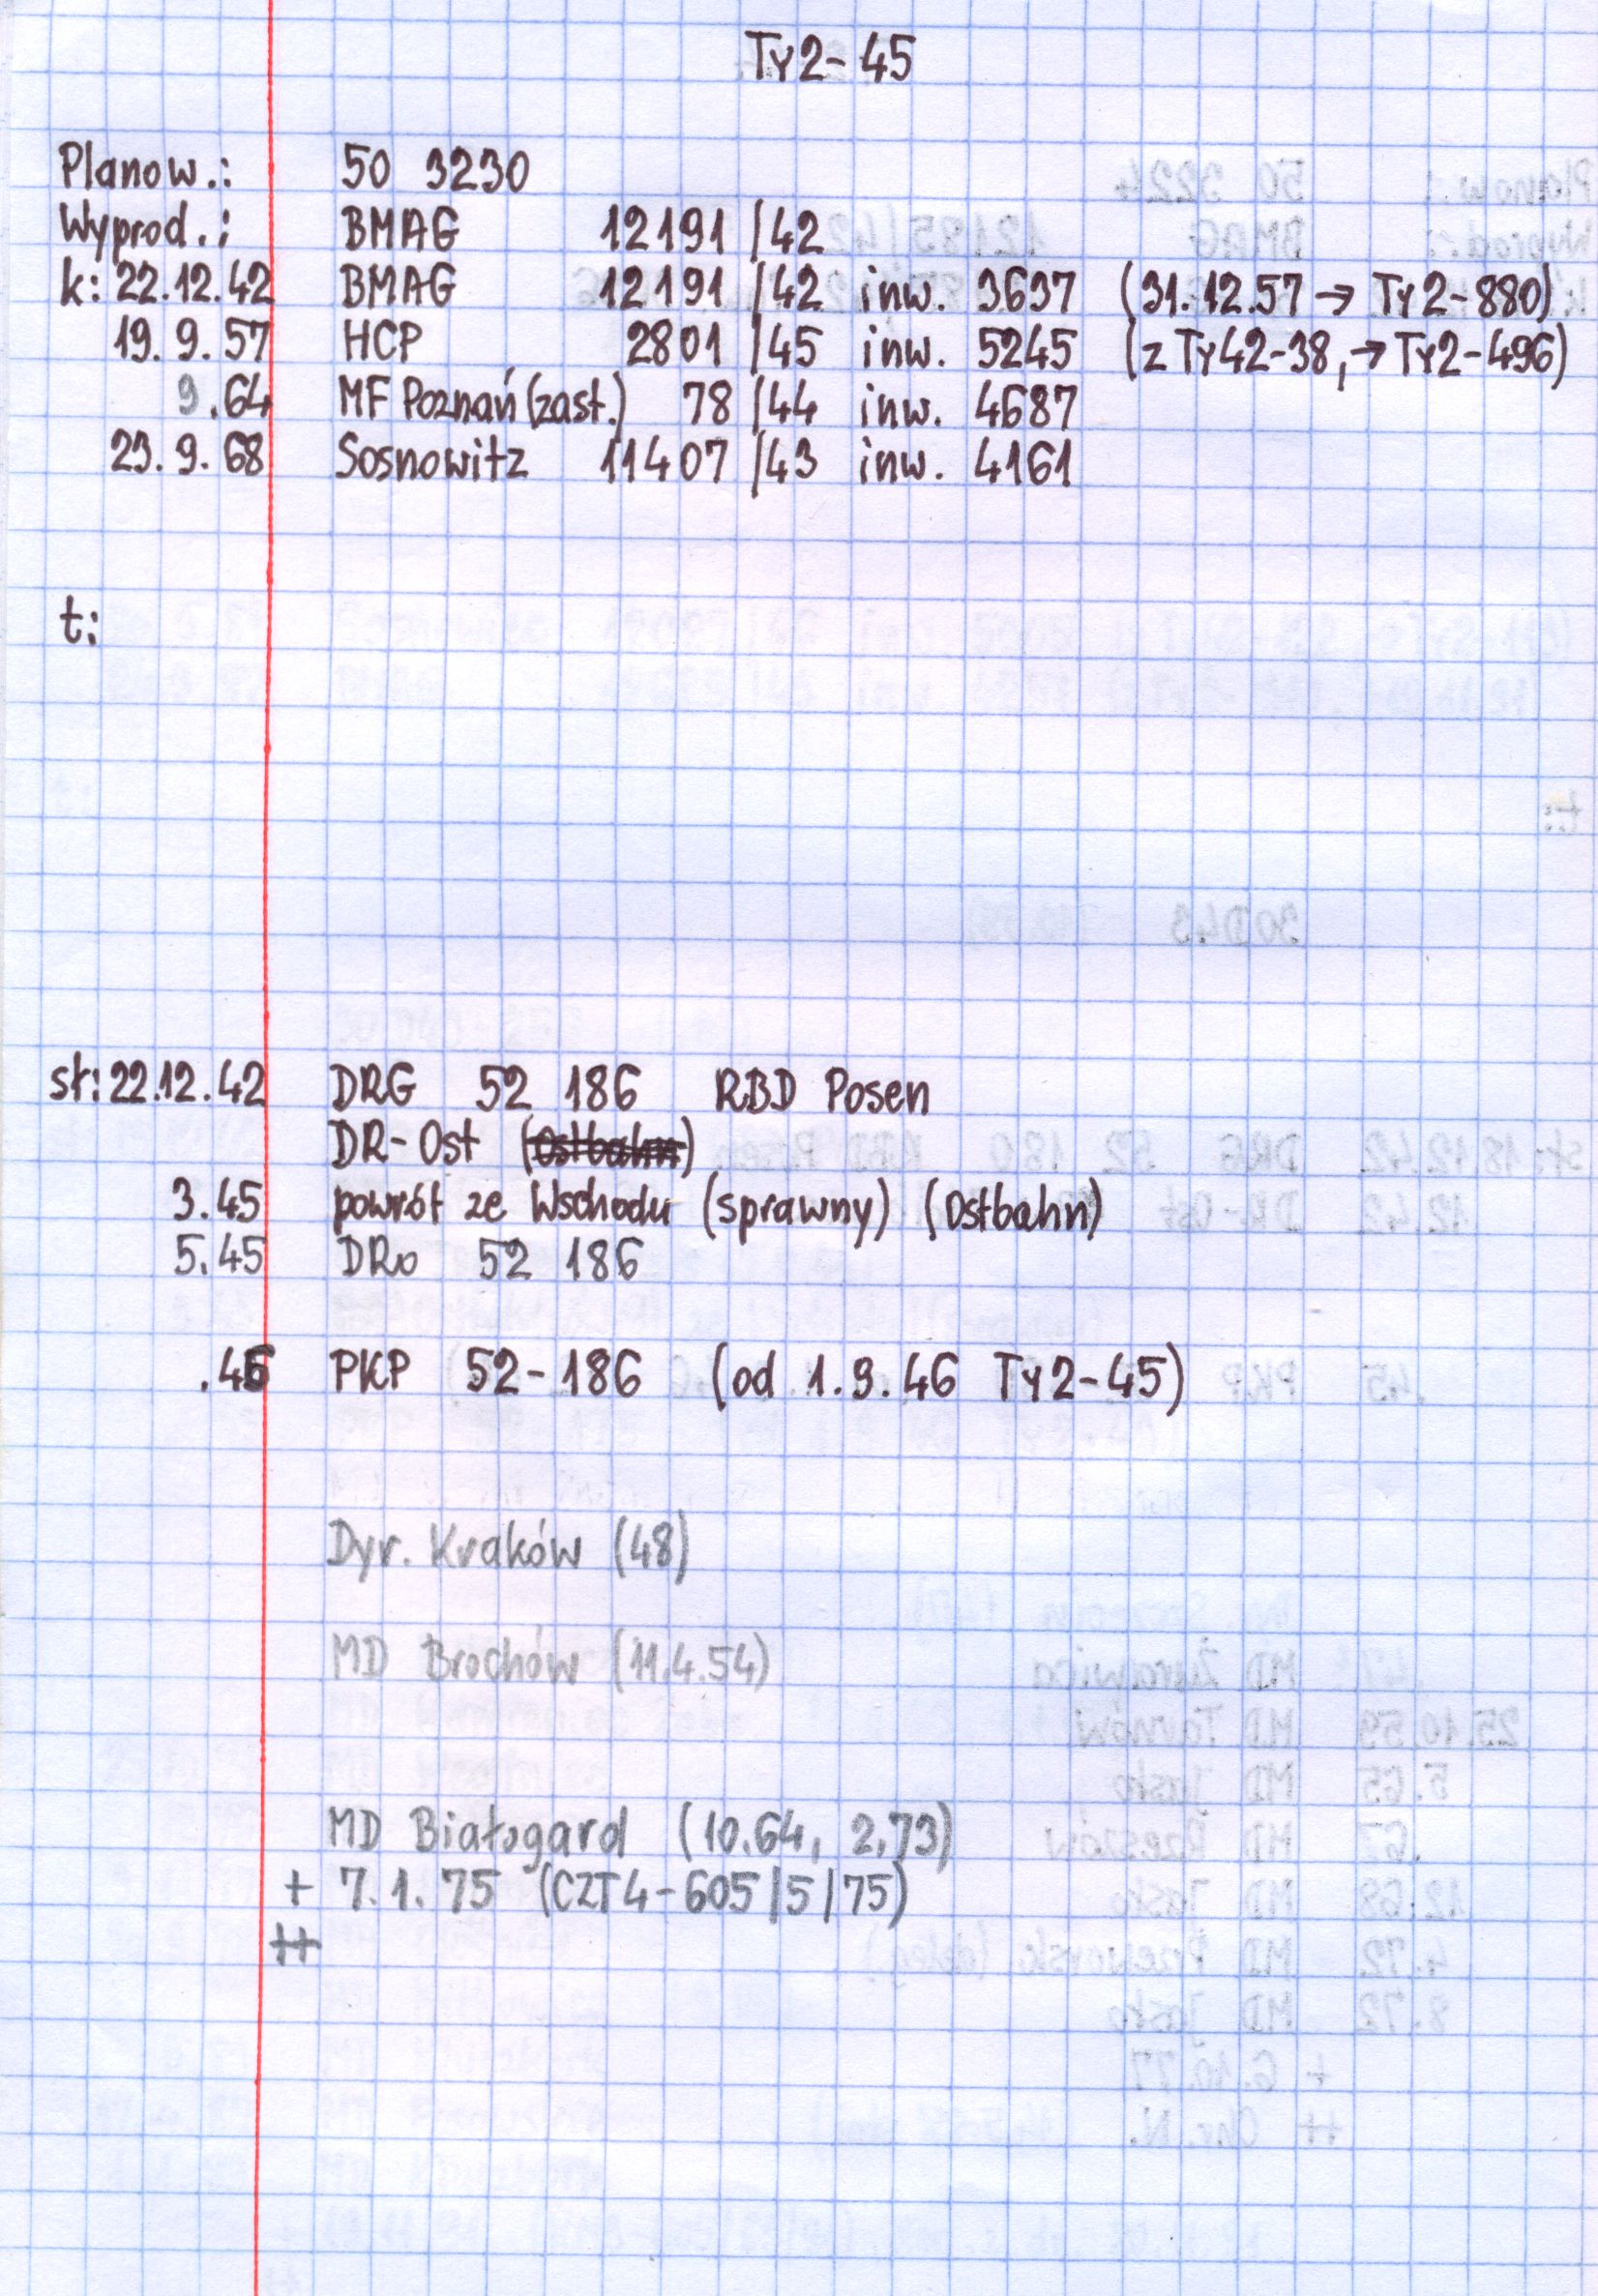 Ty2-45
Planow.: 50 3230
Wyprod.: BMAG 12191/42
k: 22.12.42 BMAG 12191/42 inw. 3637 (31.12.57 → Ty2-880)
19.9.57 HCP 2801/45 inw. 5245 (z Ty42-38, → Ty2-496)
9.64 MF Poznań (zast.) 78/44 inw. 4687
23.9.68 Sosnowitz 11407/43 inw. 4161
t:
sł: 22.12.42 DRG 52 186 RBD Posen
DR-Ost (Ostbahn)
3.45 powrót ze Wschodu (sprawny) (Ostbahn)
5.45 DRo 52 186
PKP 52-186 (od 1.9.46 Ty2-45)
Dyr. Kraków (48)
MD Brochów (11.4.54)
MD Białogard (10.64, 2.73)
+ 7.1.75 (CZT4-605/5/75)
++